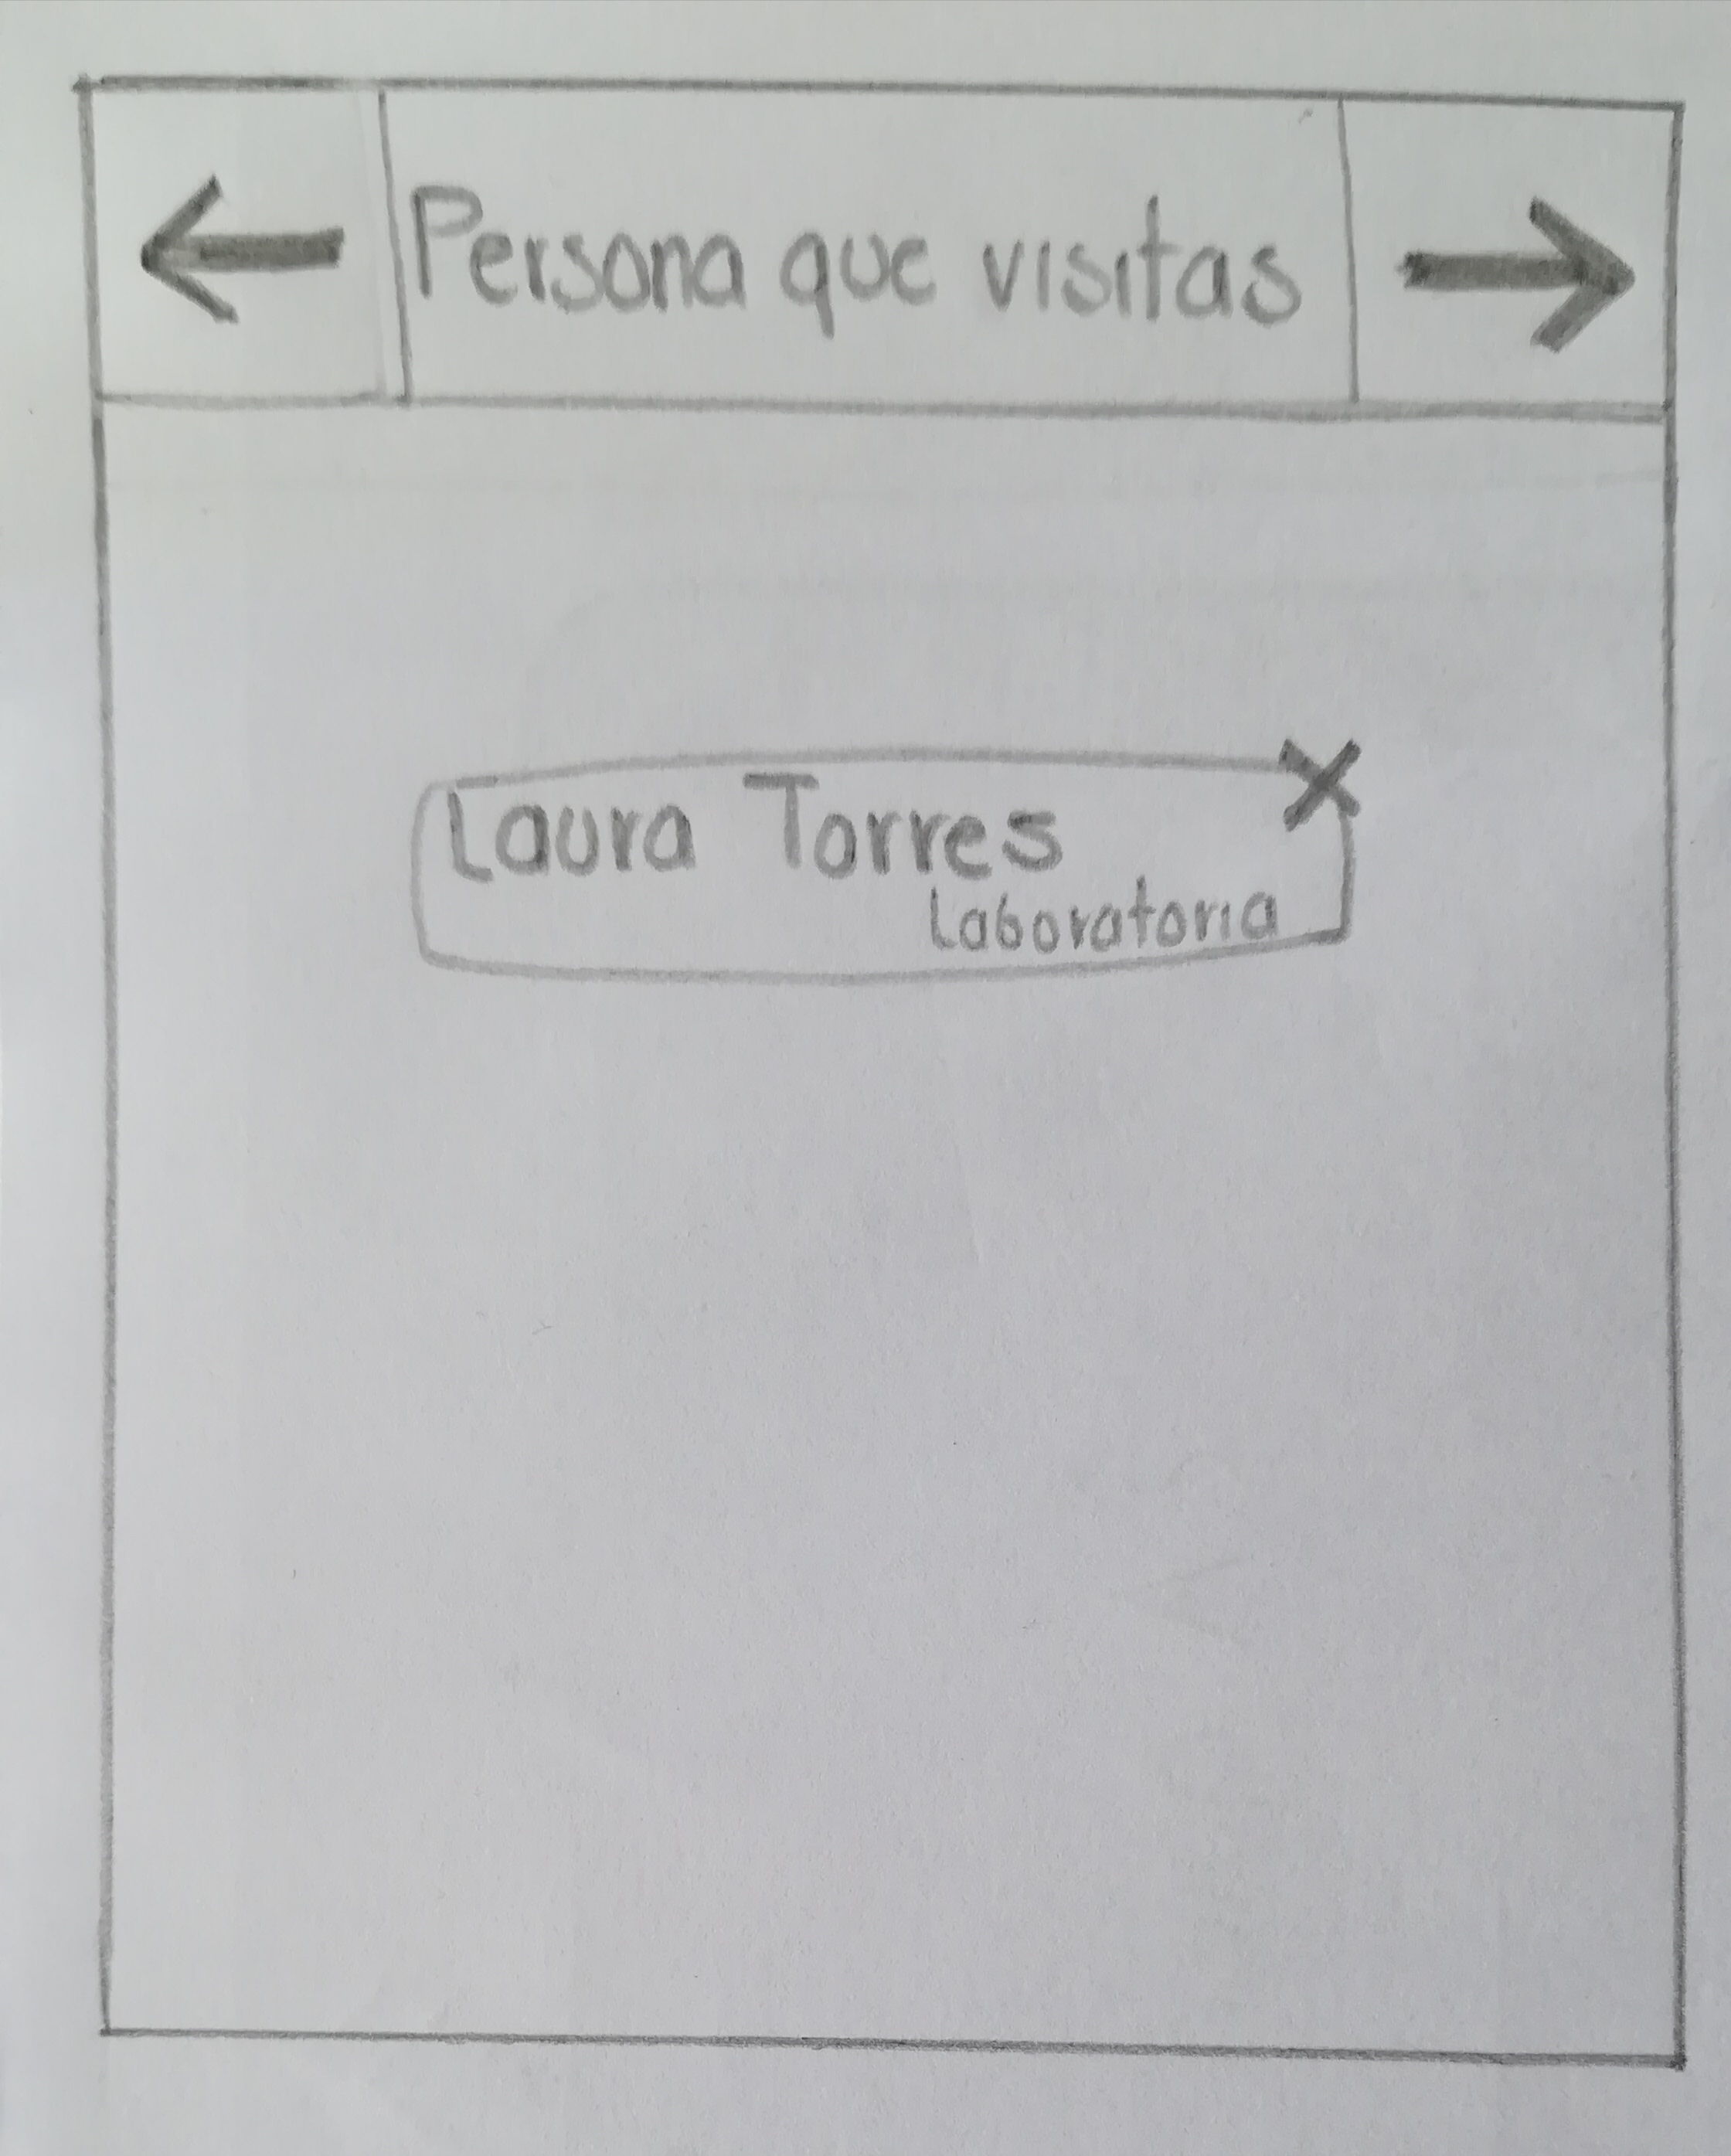 Persona que visitas
Laura Torres
Laboratoria